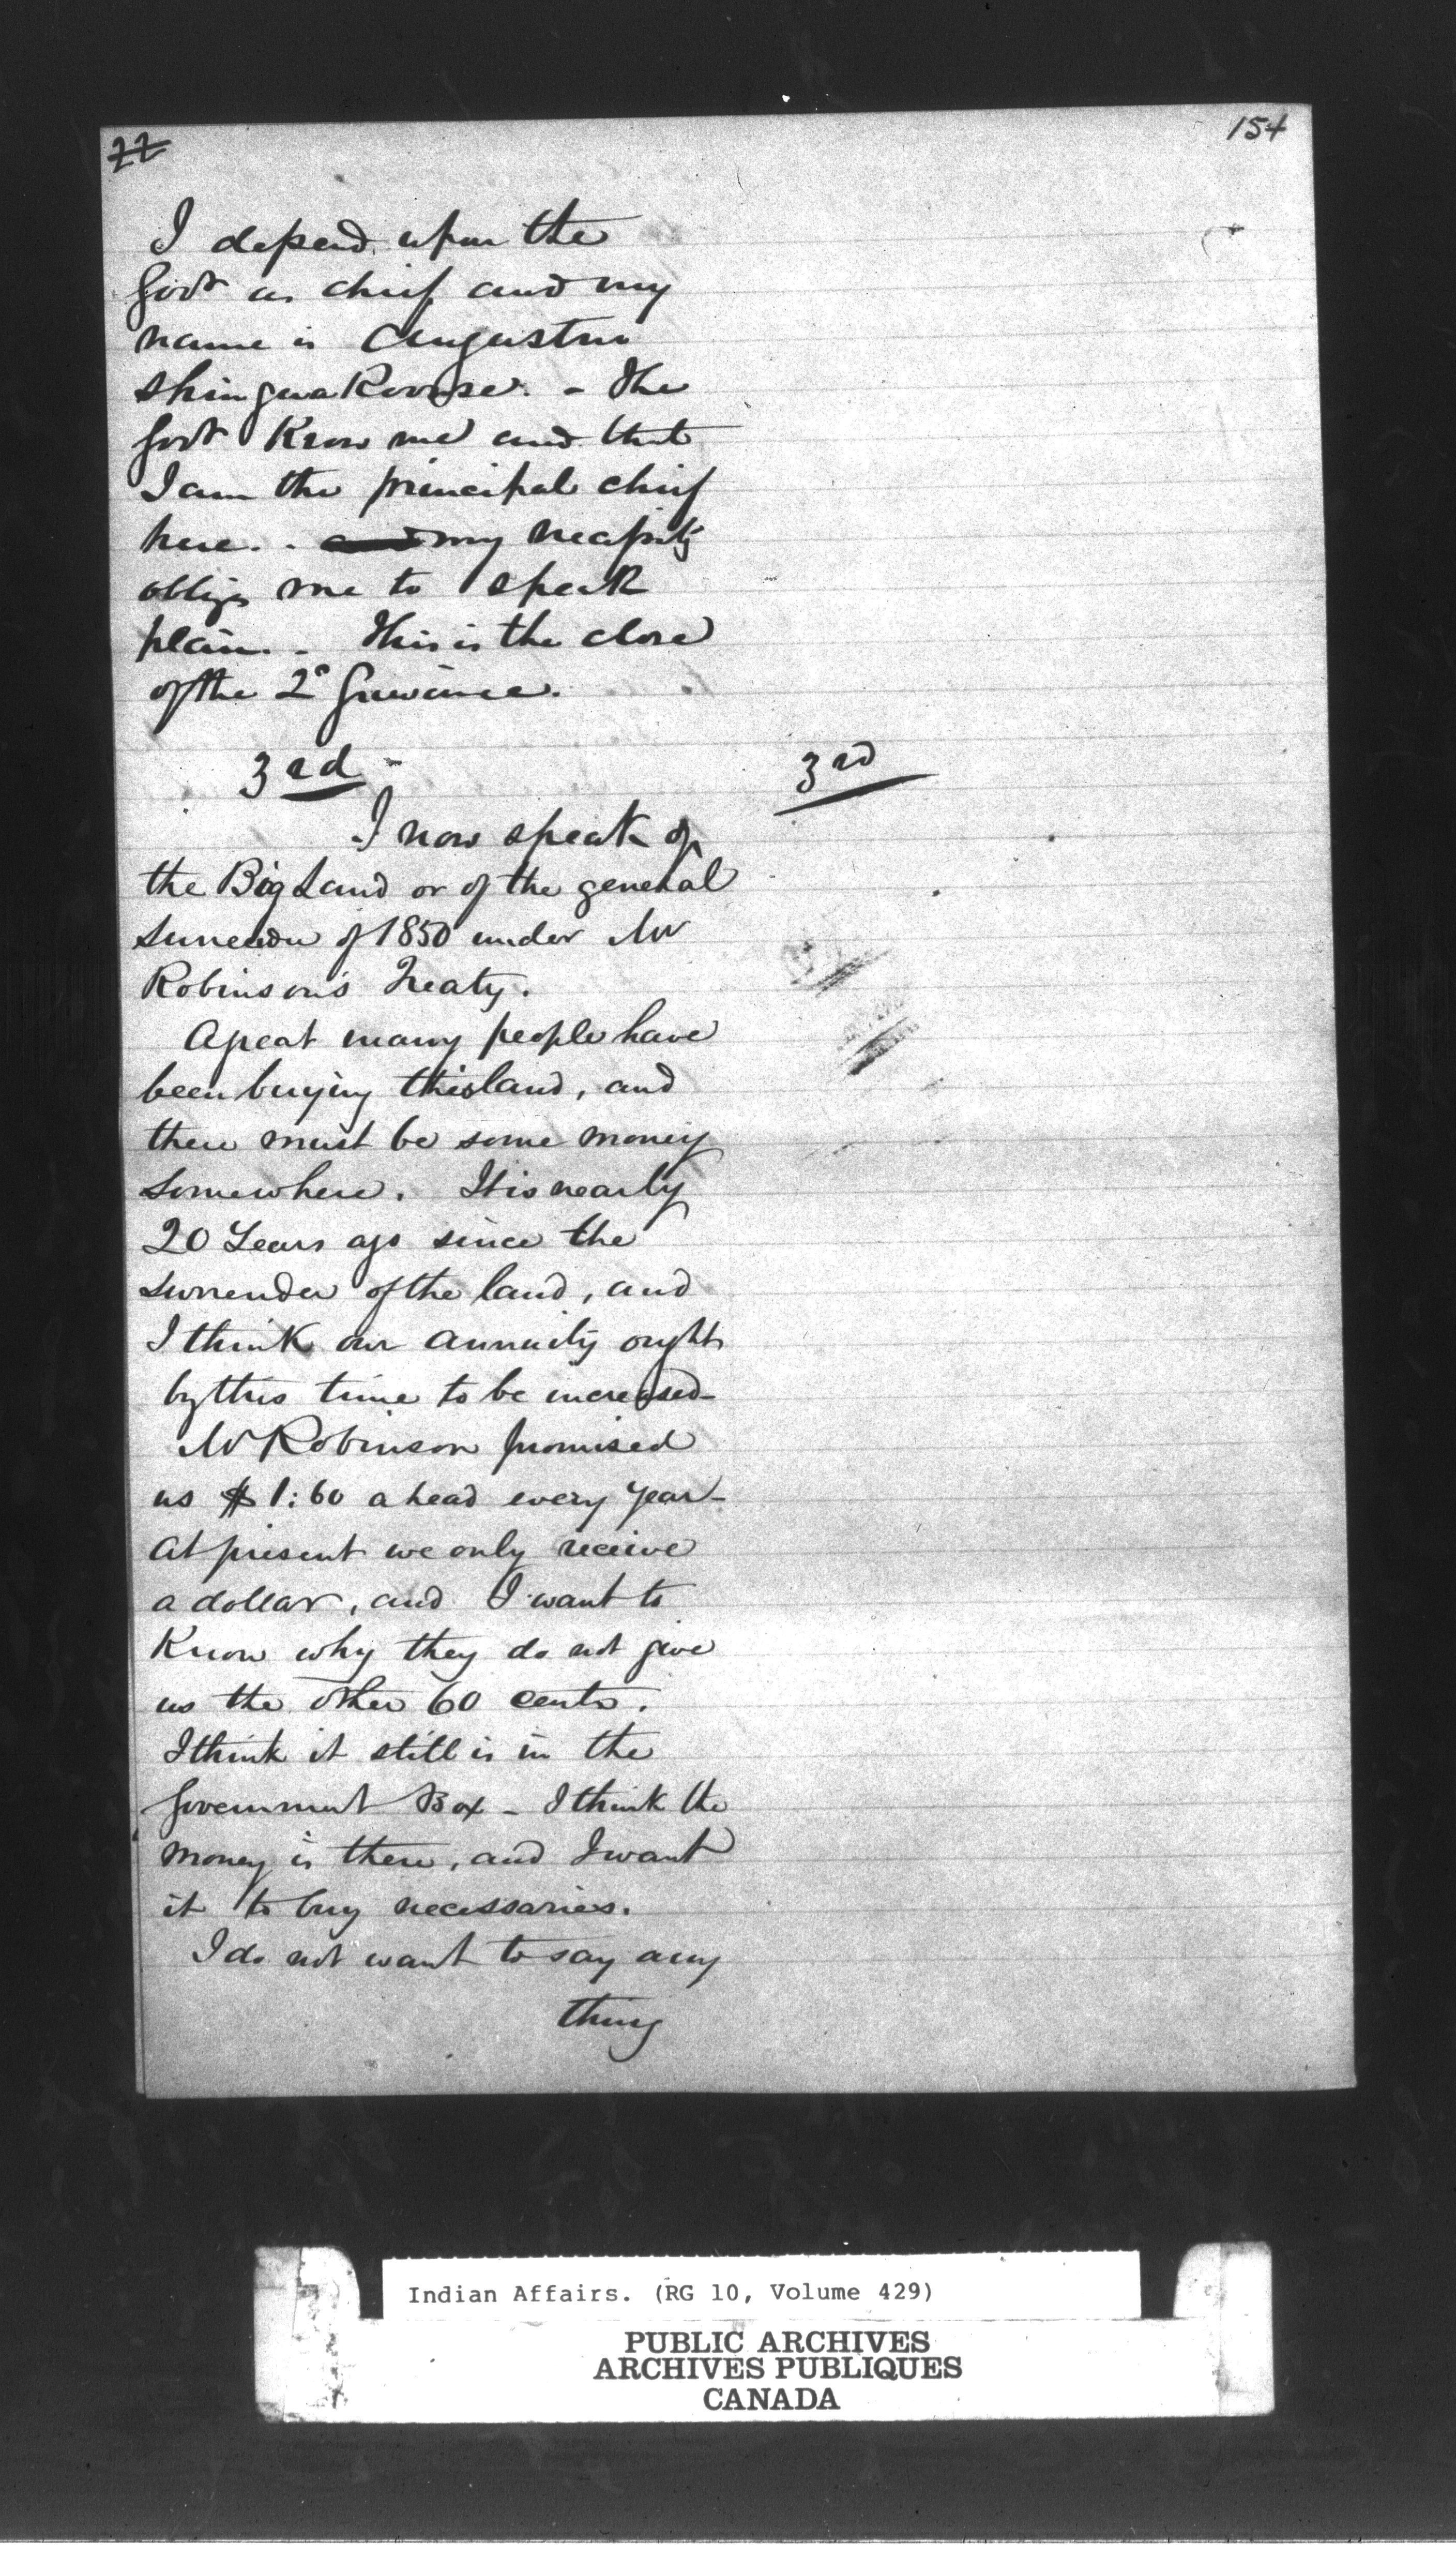 22
154
I depend upon the
Govt as chief and my
name is Augustin
Shingwakoonse. - The
Govt Know me and that
I am the principal chief
here. - and my necessity
obliges me to speak
plain. - This is the close
of the 2d Grievance.
3rd -
3rd
I now speak of
the Big Land or of the general
Surrender of 1850 under Mr
Robinson's Treaty.
A great many people have
been buying this land, and
there must be some money
Somewhere. It is nearly
20 Years ago since the
Surrender of the land, and
I think our annuity ought
by this time to be increased -
Mr Robinson promised
us $1:60 a head every year -
At present we only receive
a dollar, and I want to
Know why they do not give
us the other 60 cents.
I think it still is in the
Government Box - I think the
money is there, and I want
it to buy necessaries.
I do not want to say any
thing
Indian Affairs. (RG 10, Volume 429)
PUBLIC ARCHIVES
ARCHIVES PUBLIQUES
CANADA